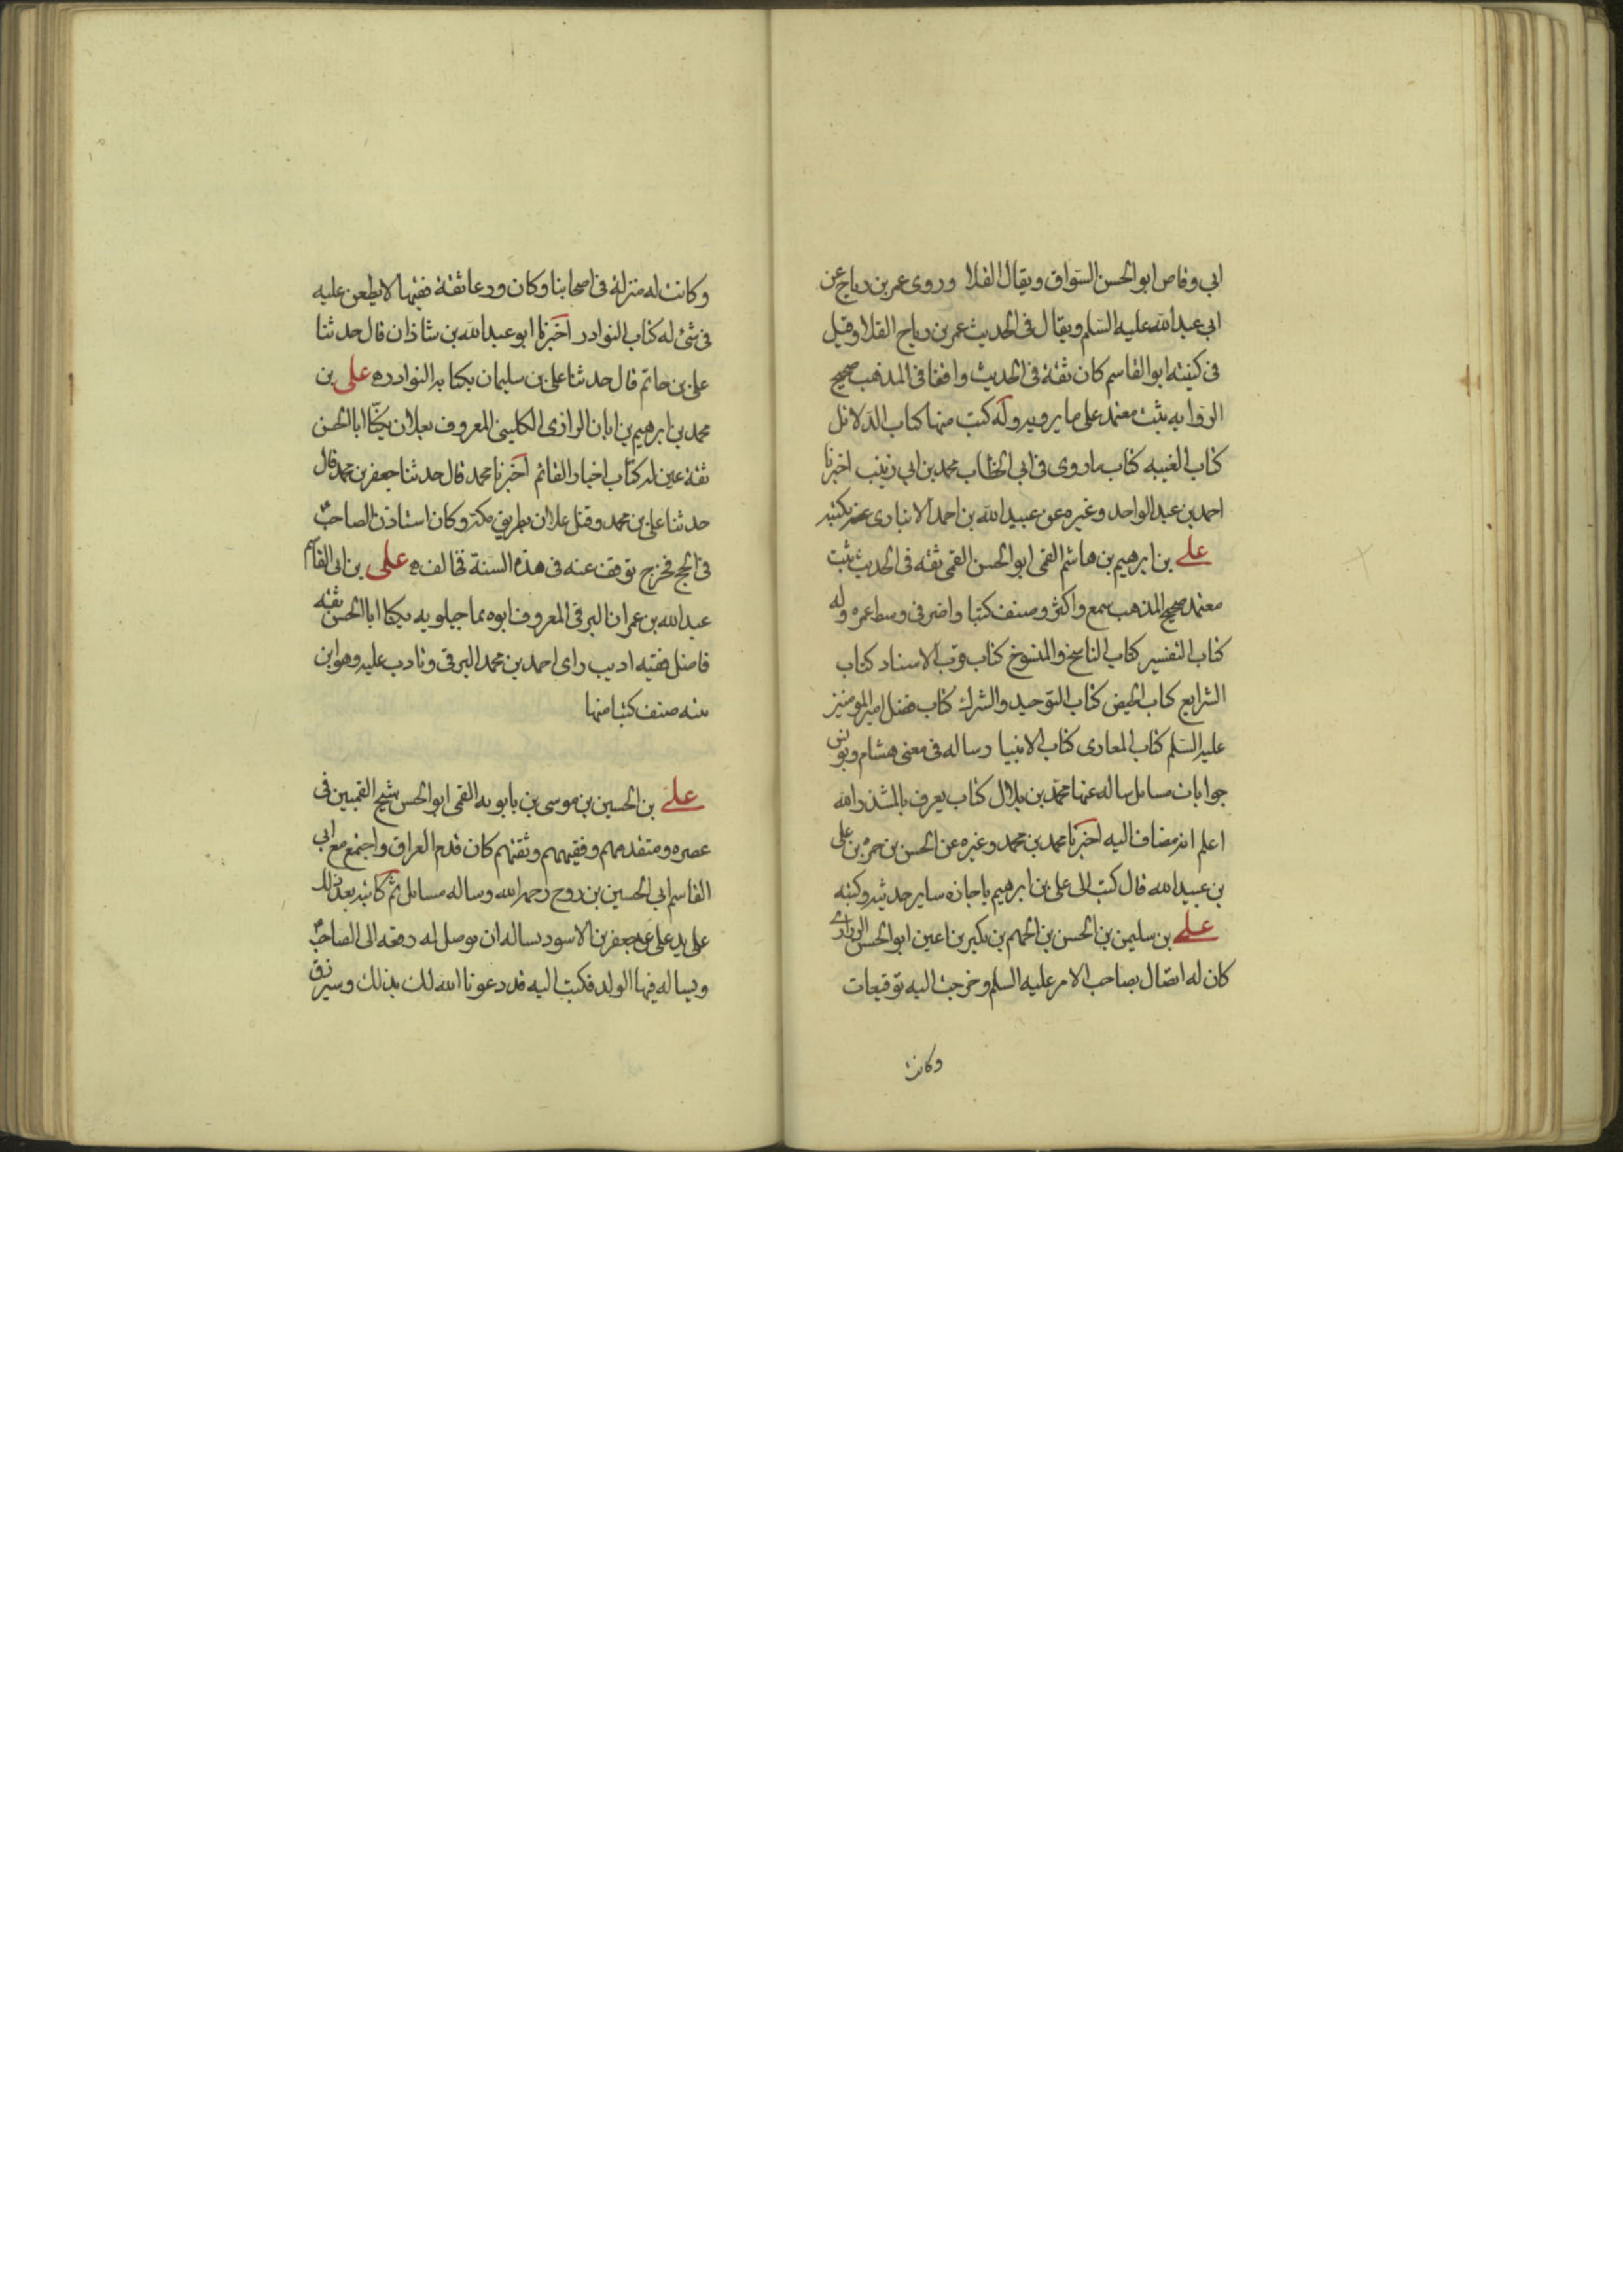 ابي وقاص ابو الحسن السواق ويقال القلا وروى عمر بن رباح عن
ابي عبد الله عليه السلم ويقال في الحديث عمر بن رباح القلا وقيل
في كنيته ابو القاسم كان ثقة في الحديث واقفا في المذهب صحيح
الروايه ثبت معتمد على ما يرويه وله كتب منها كتاب الدلائل
كتاب الغيبه كتاب ما روى في ابي الخطاب محمد بن ابي زينب اخبرنا
احمد بن عبد الواحد وغيره عن عبيد الله بن احمد الانبارى عنه بكتبه
على بن ابرهيم بن هاشم القمى ابو الحسن القمى ثقه في الحديث ثبت
معتمد صحيح المذهب سمع واكثر وصنف كتبا واضر في وسط عمره وله
كتاب التفسير كتاب الناسخ والمنسوخ كتاب قرب الاسناد كتاب
الشرايع كتاب الحيض كتاب التوحيد والشرك كتاب فضل امير المومنين
عليه السلم كتاب المغازى كتاب الانبيا رساله في معنى هشام ويونس
جوابات مسايل ساله عنها محمد بن بلال كتاب يعرف بالمشذر الله
اعلم انه مضاف اليه اخبرنا محمد بن محمد وغيره عن الحسن بن حمزه بن على
بن عبيد الله قال كتب الى على بن ابرهيم باجازه ساير حديثه وكتبه
على بن سليمن بن الحسن بن الجهم بن بكير بن اعين ابو الحسن الزرارى
كان له اتصال بصاحب الامر عليه السلم وخرجت اليه توقيعات
وكانت
وكانت له منزلة في اصحابنا وكان ورعا ثقة فقيها لا يطعن عليه
في شئ له كتاب النوادر اخبرنا ابو عبد الله بن شاذان قال حدثنا
على بن حاتم قال حدثنا على بن سليمان بكتابه النوادر على بن
محمد بن ابرهيم بن ابان الرازى الكلينى المعروف بعلان يكنا ابا الحسن
ثقة عين له كتاب اخبار القائم اخبرنا محمد قال حدثنا جعفر بن محمد قال
حدثنا على بن محمد وقتل علان بطريق مكة وكان استاذن الصاحب
في الحج فخرج توقف عنه في هذه السنة فخالف على بن ابى القاسم
عبد الله بن عمران البرقى المعروف ابوه بماجيلويه يكنا ابا الحسن ثقه
فاضل فقيه اديب راى احمد بن محمد البرقى وتادب عليه وهو ابن
بنته صنف كتبا منها
على بن الحسين بن موسى بن بابويه القمى ابو الحسن شيخ القميين في
عصره ومتقدمهم وفقيههم وثقتهم كان قدم العراق واجتمع مع ابي
القاسم ابي الحسين بن روح رحمه الله وساله مسائل ثم كاتبه بعد ذلك
على يد على بن جعفر بن الاسود يساله ان يوصل له رقعه الى الصاحب
ويساله فيها الولد فكتب اليه قد دعونا الله لك بذلك وسترزق